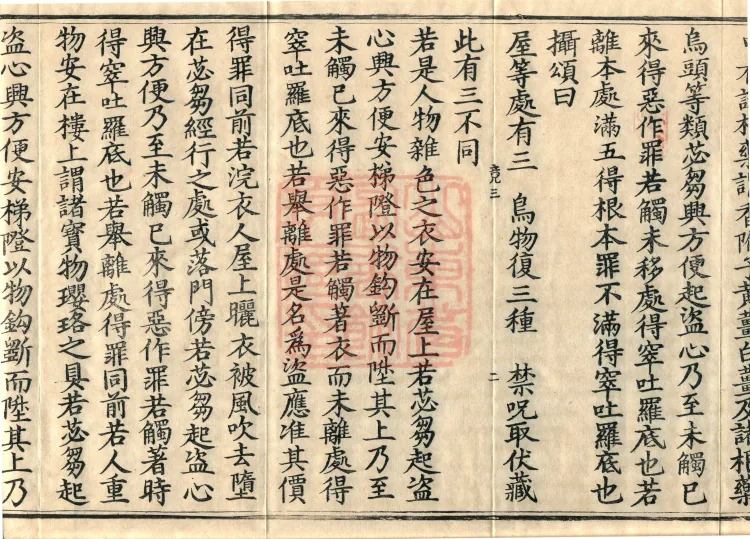 子黃薑白薑及諸根藥
烏頭等類苾芻興方便起盜心乃至未觸已
來得惡作罪若觸未移處得窣吐羅底也若
離本處滿五得根本罪不滿得窣吐羅底也
攝頌曰
屋等處有三　烏物復三種　禁呪取伏藏
三　二
此有三不同
若是人物雜色之衣安在屋上若苾芻起盜
心興方便安梯隥以物鈎斷而陞其上乃至
未觸已來得惡作罪若觸著衣而未離處得
窣吐羅底也若舉離處是名爲盜應准其價
得罪同前若浣衣人屋上曬衣被風吹去墮
在苾芻經行之處或落門傍若苾芻起盜心
興方便乃至未觸已來得惡作罪若觸著時
得窣吐羅底也若舉離處得罪同前若人重
物安在樓上謂諸寶物瓔珞之具若苾芻起
盜心興方便安梯隥以物鈎斷而陞其上乃